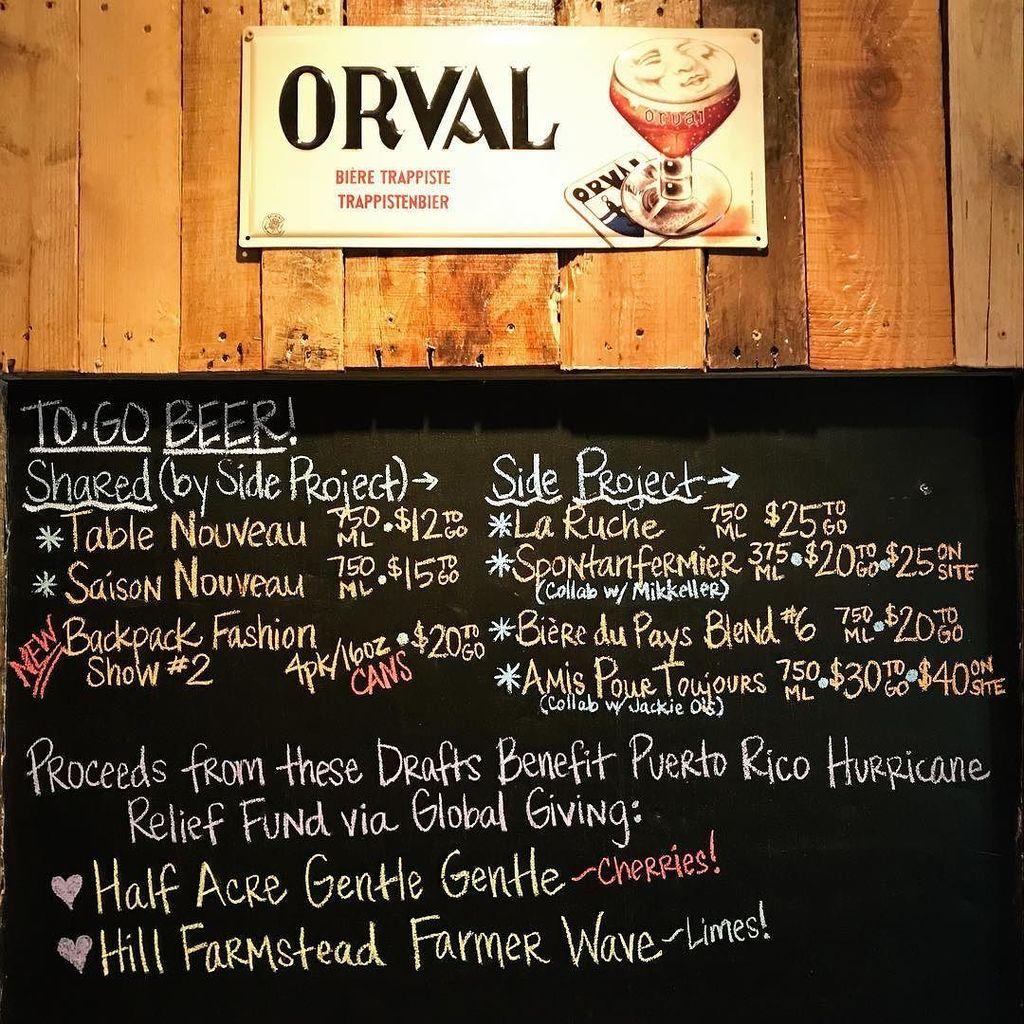 ORVAL
BIÈRE TRAPPISTE
TRAPPISTENBIER
orval
ORVAL
TO·GO BEER!
Shared (by Side Project)→
*Table Nouveau 750 ML • $12 TO GO
*Saison Nouveau 750 ML • $15 TO GO
NEW Backpack Fashion
Show #2 4pk/16oz CANS • $20 TO GO
Side Project→
*La Ruche 750 ML $25 TO GO
*Spontanfermier 375 ML • $20 TO GO • $25 ON SITE
(Collab w/ Mikkeller)
*Bière du Pays Blend #6 750 ML • $20 TO GO
*Amis Pour Toujours 750 ML • $30 TO GO • $40 ON SITE
(Collab w/ Jackie O's)
Proceeds from these Drafts Benefit Puerto Rico Hurricane
Relief Fund via Global Giving:
♥ Half Acre Gentle Gentle ~Cherries!
♥ Hill Farmstead Farmer Wave ~Limes!